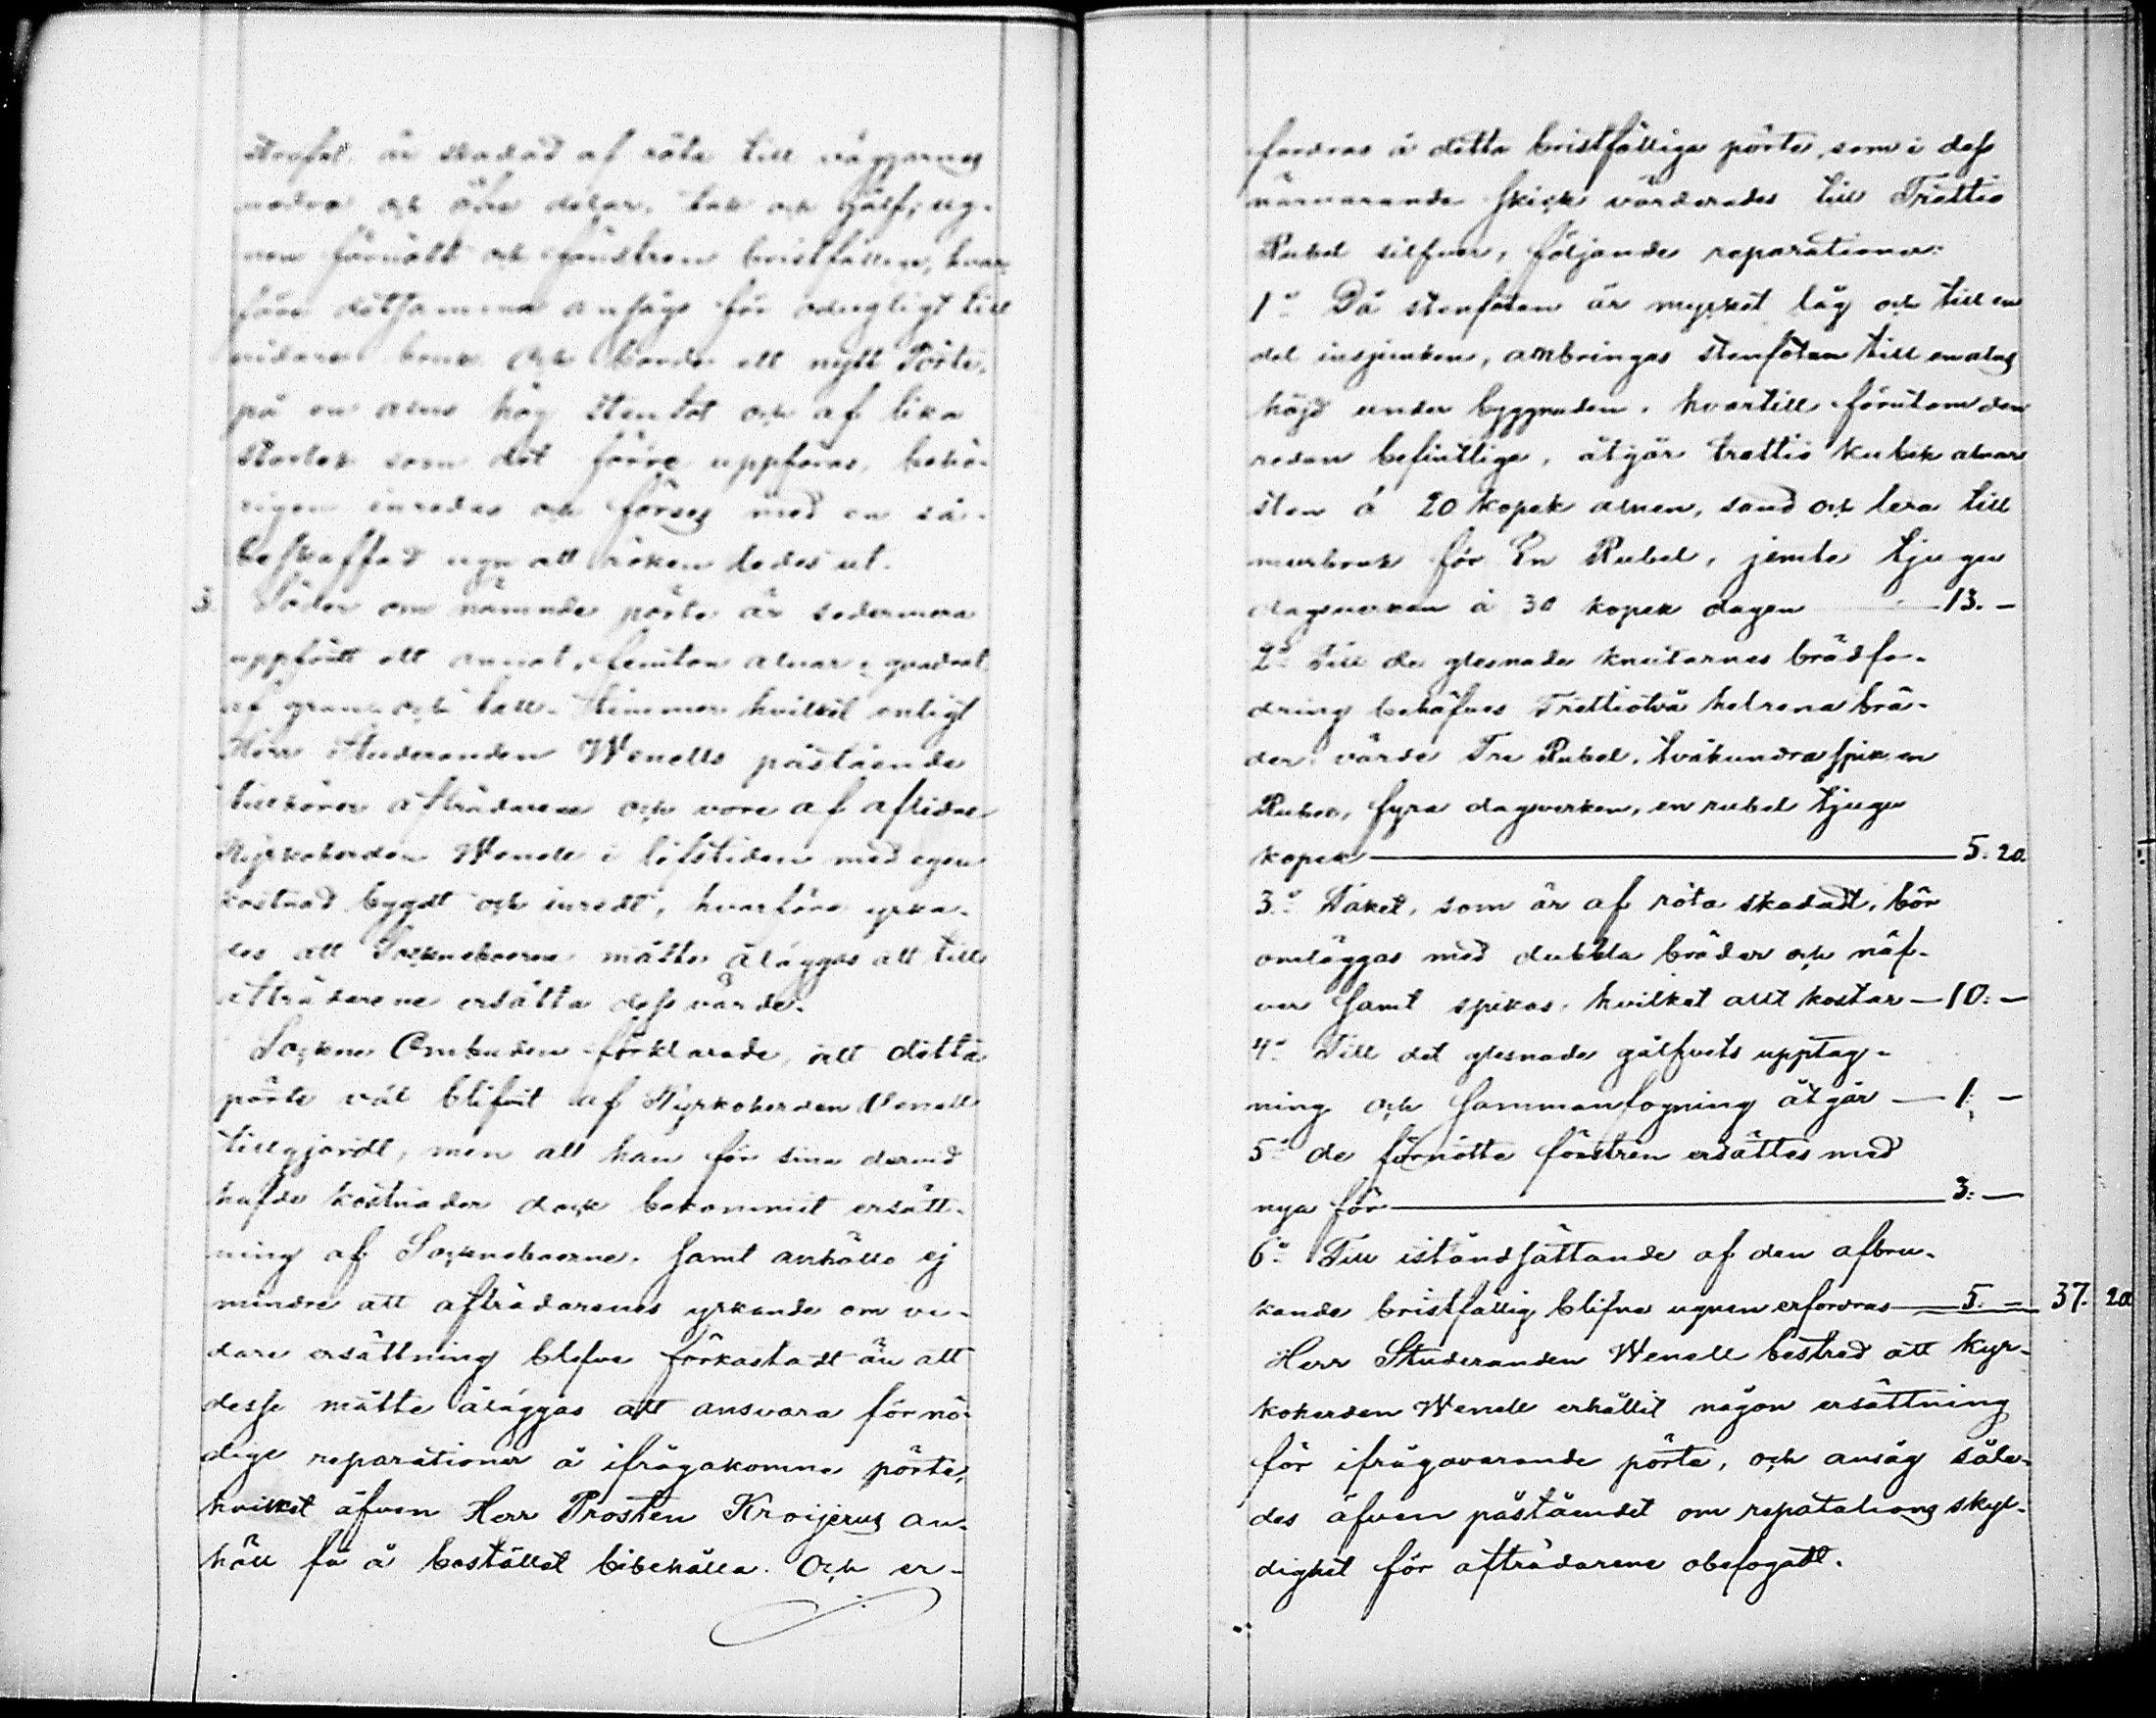 är skadad af röta till väggarnes
nedra och öfra delar, tak och golf; ug-
nen förnött och fönstren bristfällige, hvar-
före detsamma ansågs för odugligt till
vidare bruk. Och borde ett nytt Pörte,
på en alns hög stenfot och af lika
storlek som det förre uppföras, behö-
rigen inredas och förses med en så-
beskaffad ugn att röken ledes ut.
3. Söder om nämnde pörte är sedermera
uppfördt ett annat, femton alnar i quadrat
af gran och tall-timmer hvilket enligt
Herr Studeranden Wenells påstående
tillhörer afträdarene och vore af aflidne
Kyrkoherden Wenell i lifstiden med egen
kostnad bygdt och inredt, hvarföre yrka-
des att Sockneboerne måtte åläggas att till
afträdarene ersätta dess värde.
Sockne Ombuden förklarade, att detta
pörte väl blifvit af Kyrkoherden Wenell
tillgjordt, men att han för sina dervid
hafde kostnader dock bekommit ersätt-
ning af Socknboerne. Samt anhölle ej
mindre att afträdarenes yrkande om vi-
dare ersättning blefve förkastadt än att
desse måtte åläggas att ansvara för nö-
dige reparationer å ifrågakomne pörte,
hvilket äfven Herr Prosten Kroijerus an-
höll få å bostället bibehålla. Och er-
fordras å detta bristfälliga pörte, som i dess
närvarande skick värderades till Trettio
Rubel silfver, följande reparationer:
1o Då stenfoten är mycket låg och till en
del insjunken, anbringas stenfoten till en alns
höjd under byggnaden, hvartill förutom den
redan befintliga, åtgår trettio kubik alnar
sten á 20 kopek alnen, sand och lera till
murbruk för En Rubel, jemte tjugu
dagsverken à 30 kopek dagen — 13. —
2o Till de glesnade knutarnes brädfo-
dring behöfves Trettiotvå helrena brä-
der, värde Tre Rubel, tvåhundra spik en
Rubel, fyra dagsverken, en rubel tjugu
kopek — 5. 20.
3o Taket, som är af röta skadadt, bör
omläggas med dubbla bräder och näf-
ver samt spikas, hvilket allt kostar — 10: —
4o Till det glesnade golfvets upptag-
ning och sammanfogning åtgår — 1: —
5o de förnötte fönstren ersättes med
nya för — 3: —
6o Till iståndsättande af den afbru-
kande bristfällig blifne ugnen erfordras — 5. — 37. 20
Herr Studeranden Wenell bestred att Kyr-
koherden Wenell erhållit någon ersättning
för ifrågavarande pörte, och ansåg såle-
des äfven påståendet om reparations skyl-
dighet för afträdarene obefogadt.